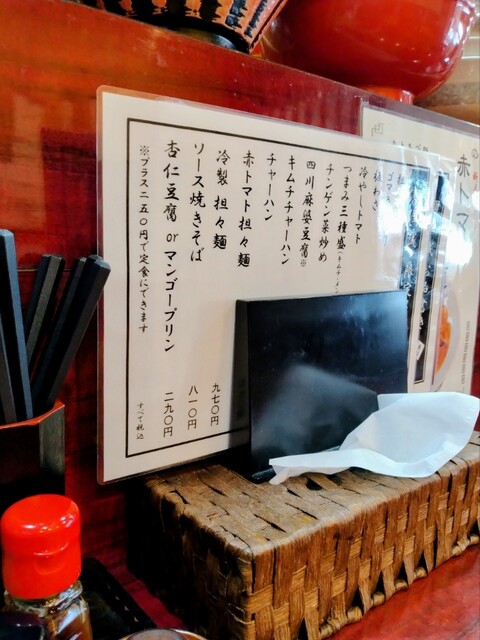 赤トマ
枝わさ
冷やしトマト
つまみ三種盛(キムチ・メン
チンゲン菜炒め
四川麻婆豆腐※
キムチチャーハン
チャーハン
赤トマト担々麺
冷製 担々麺 九七〇円
ソース焼きそば 八一〇円
杏仁豆腐 or マンゴープリン 二九〇円
※プラス二五〇円で定食にできます
すべて税込